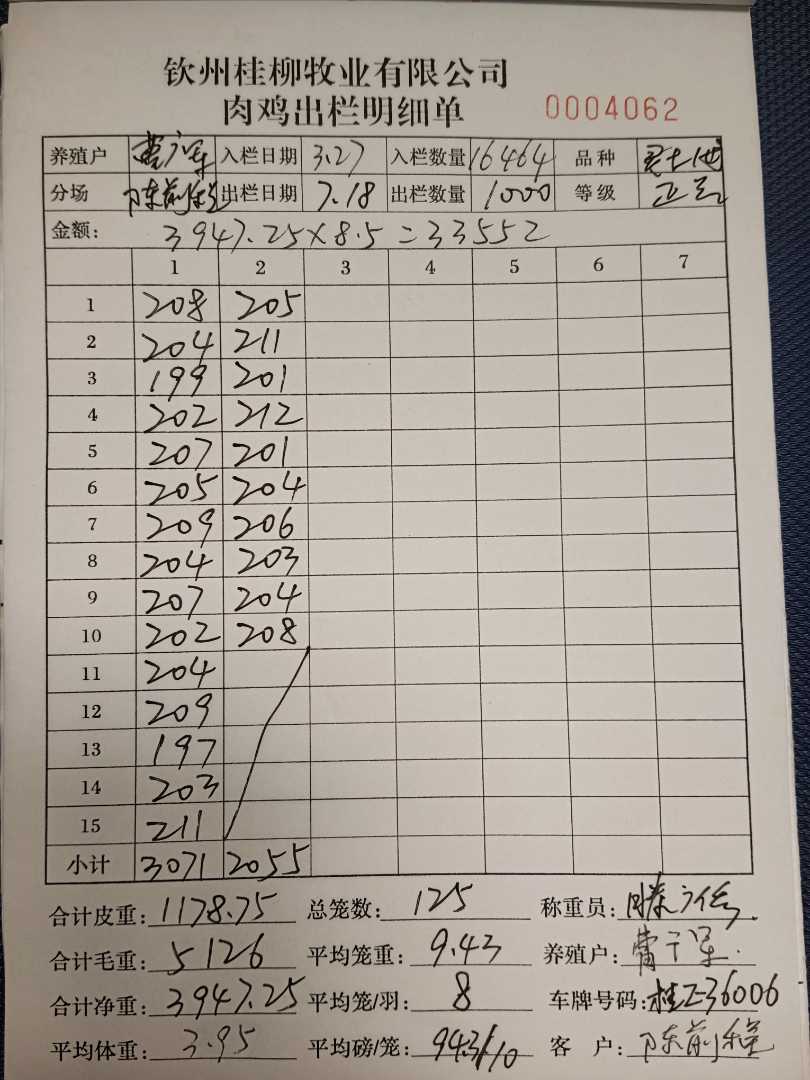 钦州桂柳牧业有限公司
肉鸡出栏明细单 0004062
养殖户 入栏日期 3.27 入栏数量 16464 品种 土
分场 陈前程 出栏日期 7.18 出栏数量 1000 等级 正品
金额: 3947.25×8.5=33552
1 2 3 4 5 6 7
1 208 205
2 204 211
3 199 201
4 202 212
5 207 201
6 205 204
7 209 206
8 204 203
9 207 204
10 202 208
11 204
12 209
13 197
14 203
15 211
小计 3071 2055
合计皮重: 1178.75 总笼数: 125 称重员:
合计毛重: 5126 平均笼重: 9.43 养殖户:
合计净重: 3947.25 平均笼/羽: 8 车牌号码: 桂Z36006
平均体重: 3.95 平均磅/笼: 943/10 客 户: 陈前程